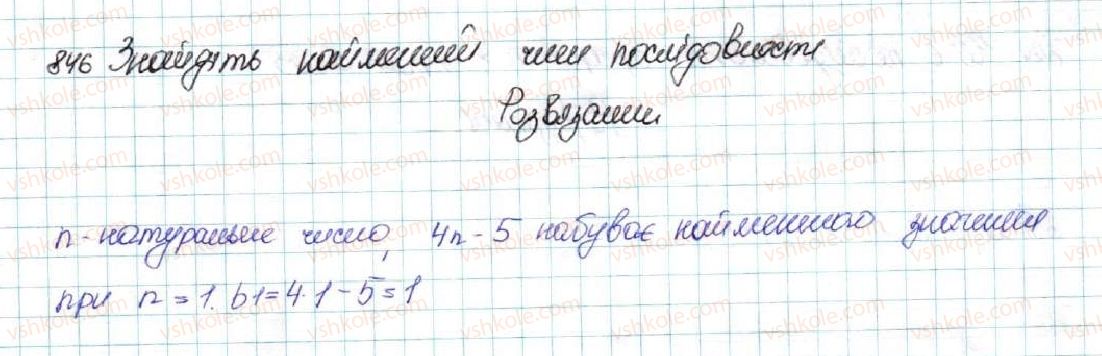 846 Знайдіть найменший член послідовності
Розвязання
n - натуральне число, 4n - 5 набуває найменшого значення
при n = 1. b1 = 4·1 - 5 = 1
vshkole.com